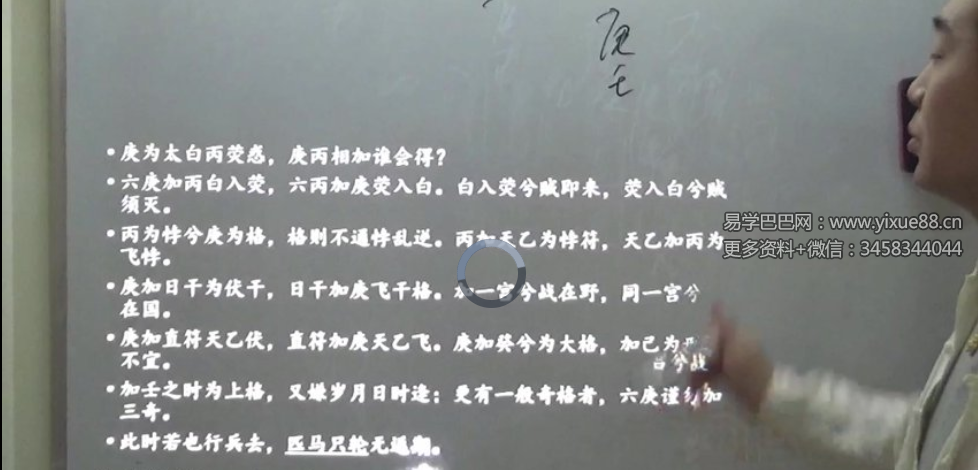 庚
壬
•庚为太白丙荧惑，庚丙相加谁会得？
•六庚加丙白入荧，六丙加庚荧入白。白入荧兮贼即来，荧入白兮贼
须灭。
•丙为悖兮庚为格，格则不通悖乱逆。丙加天乙为悖符，天乙加丙为
飞悖。
•庚加日干为伏干，日干加庚飞干格。加一宫兮战在野，同一宫兮
在国。
•庚加直符天乙伏，直符加庚天乙飞。庚加癸兮为大格，加己为
宫兮战
不宜。
•加壬之时为上格，又嫌岁月日时逢；更有一般奇格者，六庚谨勿加
三奇。
•此时若也行兵去，匹马只轮无返期。
易学巴巴网：www.yixue88.cn
更多资料+微信：3458344044